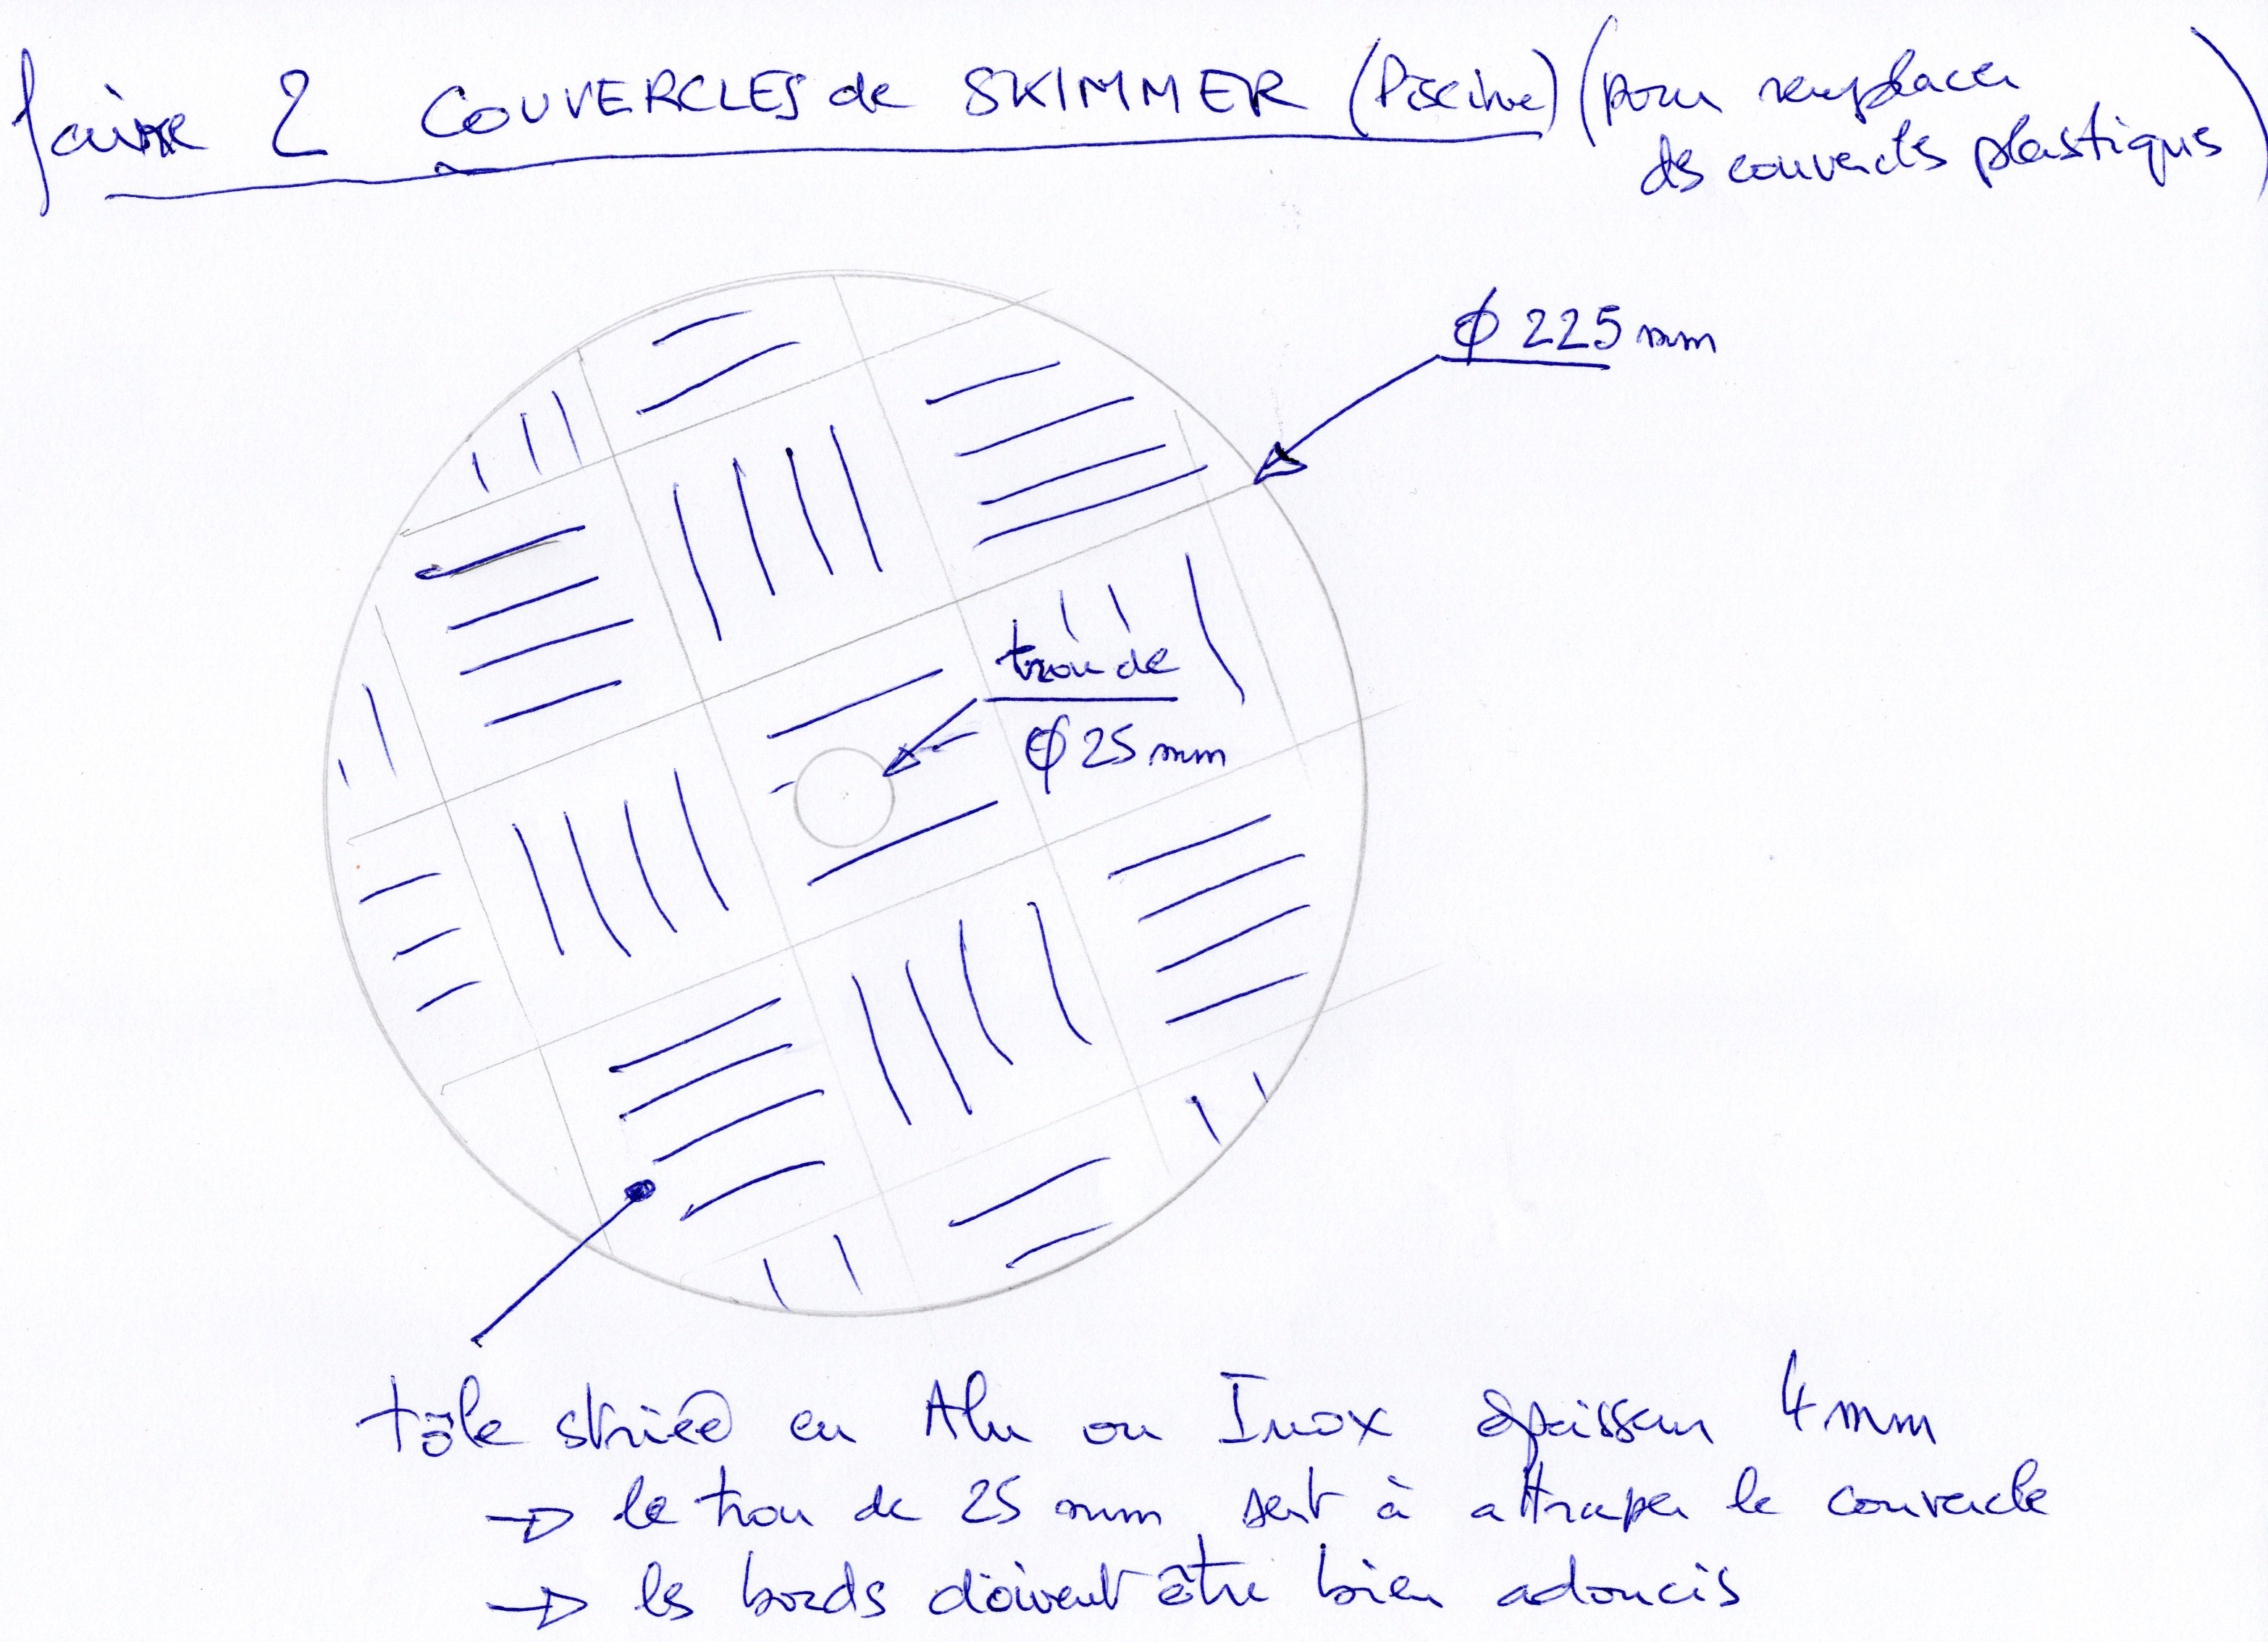 faire 2 COUVERCLES de SKIMMER (Piscine) (pour remplacer
des couvercles plastiques)
ϕ 225 mm
trou de
ϕ 25 mm
tôle striée en Alu ou Inox épaisseur 4 mm
→ le trou de 25 mm sert à attraper le couvercle
→ les bords doivent être bien adoucis